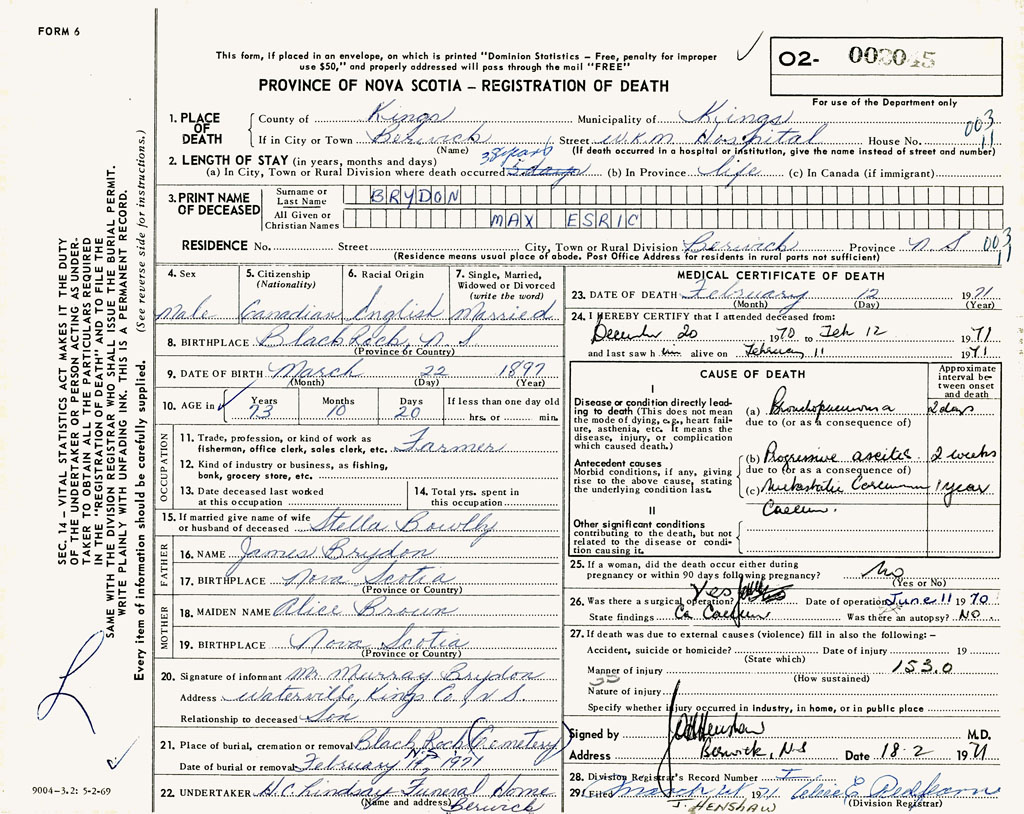 FORM 6
This form, if placed in an envelope, on which is printed "Dominion Statistics – Free, penalty for improper
use $50," and properly addressed will pass through the mail "FREE"
PROVINCE OF NOVA SCOTIA – REGISTRATION OF DEATH
O2- 002045
For use of the Department only
SEC. 14 – VITAL STATISTICS ACT MAKES IT THE DUTY
OF THE UNDERTAKER OR PERSON ACTING AS UNDER-
TAKER TO OBTAIN ALL THE PARTICULARS REQUIRED
IN THE "REGISTRATION OF DEATH" AND TO FILE THE
SAME WITH THE DIVISION REGISTRAR WHO SHALL ISSUE THE BURIAL PERMIT.
WRITE PLAINLY WITH UNFADING INK. THIS IS A PERMANENT RECORD.
Every item of information should be carefully supplied. (See reverse side for instructions.)
1. PLACE OF DEATH
County of Kings Municipality of Kings
003
11
If in City or Town Berwick Street W.K.M Hospital House No.
(Name) (If death occurred in a hospital or institution, give the name instead of street and number)
2. LENGTH OF STAY (in years, months and days)
38 years
(a) In City, Town or Rural Division where death occurred 5 days (b) In Province life (c) In Canada (if immigrant)
3. PRINT NAME OF DECEASED
Surname or Last Name BRYDON
All Given or Christian Names MAX ESRIC
RESIDENCE No. Street City, Town or Rural Division Berwick Province N S 003
11
(Residence means usual place of abode. Post Office Address for residents in rural parts not sufficient)
4. Sex
Male
5. Citizenship (Nationality)
Canadian
6. Racial Origin
English
7. Single, Married, Widowed or Divorced (write the word)
Married
8. BIRTHPLACE Black Rock, N. S
(Province or Country)
9. DATE OF BIRTH March 22 1897
(Month) (Day) (Year)
10. AGE in Years 73 Months 10 Days 20 If less than one day old
hrs. or min.
OCCUPATION
11. Trade, profession, or kind of work as
fisherman, office clerk, sales clerk, etc. Farmer
12. Kind of industry or business, as fishing,
bank, grocery store, etc.
13. Date deceased last worked
at this occupation
14. Total yrs. spent in
this occupation
15. If married give name of wife
or husband of deceased Stella Bowlby
FATHER
16. NAME James Brydon
17. BIRTHPLACE Nova Scotia
(Province or Country)
MOTHER
18. MAIDEN NAME Alice Brown
19. BIRTHPLACE Nova Scotia
(Province or Country)
20. Signature of informant Mr Murray Brydon
Address Waterville, Kings Co, N. S.
Relationship to deceased Son
21. Place of burial, cremation or removal Black Rock (Cemetery)
N.S
Date of burial or removal February 14 1971
22. UNDERTAKER H.C Lindsay Funeral Home
(Name and address) Berwick
9004–3.2: 5-2-69
MEDICAL CERTIFICATE OF DEATH
23. DATE OF DEATH February 12 1971
(Month) (Day) (Year)
24. I HEREBY CERTIFY that I attended deceased from:
December 20 1970 to Feb 12 1971
and last saw him alive on February 11 1971
CAUSE OF DEATH
Approximate
interval be-
tween onset
and death
I
Disease or condition directly lead-
ing to death (This does not mean
the mode of dying, e.g., heart fail-
ure, asthenia, etc. It means the
disease, injury, or complication
which caused death.)
(a) Bronchopneumonia 2 days
due to (or as a consequence of)
Antecedent causes
Morbid conditions, if any, giving
rise to the above cause, stating
the underlying condition last.
(b) Progressive ascites 2 weeks
due to (or as a consequence of)
(c) Metastatic Carcinoma 1 year
Caecum.
II
Other significant conditions
contributing to the death, but not
related to the disease or condi-
tion causing it.
25. If a woman, did the death occur either during
pregnancy or within 90 days following pregnancy? No
(Yes or No)
26. Was there a surgical operation? Yes Date of operation June 11 1970
State findings Ca Caecum Was there an autopsy? NO.
27. If death was due to external causes (violence) fill in also the following:–
Accident, suicide or homicide? Date of injury 19
(State which)
Manner of injury 153.0
(How sustained)
35
Nature of injury
Specify whether injury occurred in industry, in home, or in public place
Signed by J Henshaw M.D.
Address Berwick, N.S Date 18-2 1971
28. Division Registrar's Record Number
29. Filed March 1st 1971 Elsie E Redfearn
J. HENSHAW (Division Registrar)